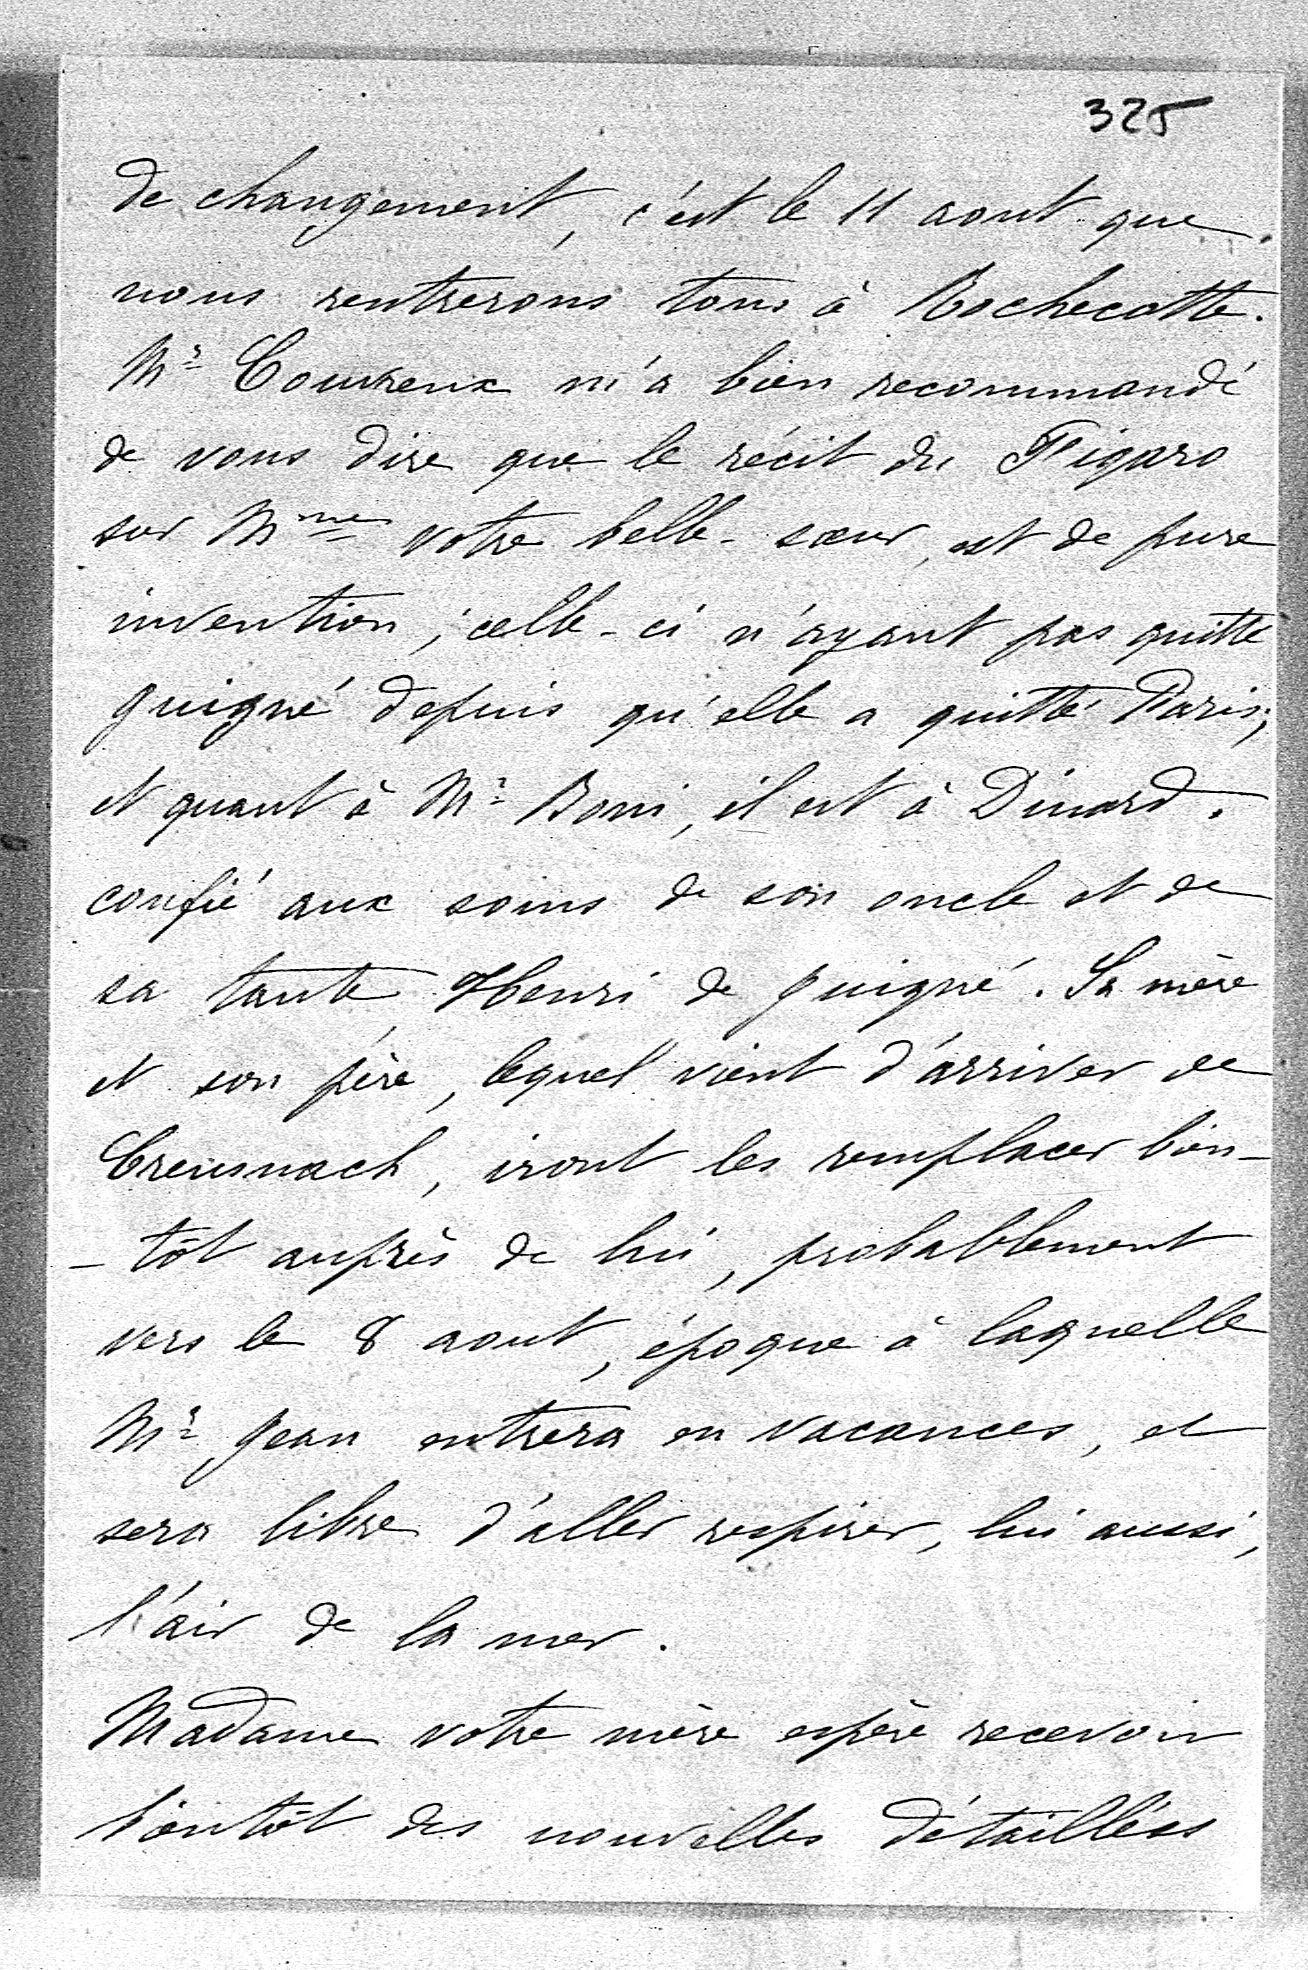 325
de changement, c'est le 11 aout que
nous rentrerons tous à Rochecotte.
Mr Couvreux m'a bien recommandé
de vous dire que le récit du Figaro
sur Mme votre belle-sœur, est de pure
invention ; celle-ci n'ayant pas quitté
Juigné depuis qu'elle a quitté Paris;
et quant à Mr Boni, il est à Dinard.
confié aux soins de son oncle et de
sa tante Henri de Juigné. Sa mère
et son père, lequel vient d'arriver de
Creusnach, iront les remplacer bien-
-tôt auprès de lui, probablement
vers le 8 aout, époque à laquelle
Mr Jean entrera en vacances, et
sera libre d'aller respirer, lui aussi,
l'air de la mer.
Madame votre mère espère recevoir
bientôt des nouvelles détaillées